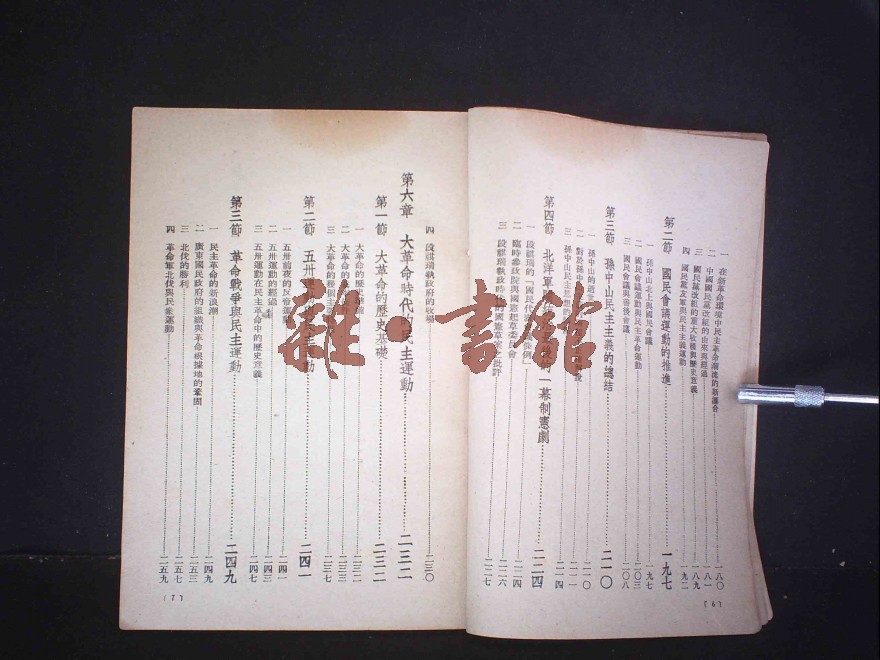 一 在新革命環境中民主革命潮流的新匯合 一八〇
二 中國國民黨改組的由來與經過 一八一
三 國民黨改組的重大收穫與歷史意義 一八九
四 國民黨友軍與民主主義運動 一九二
第二節 國民會議運動的推進 一九七
一 孫中山北上與國民會議 一九七
二 國民會議運動與民主革命運動
三 國民會議與善後會議 二〇八
第三節 孫中山民主主義的總結 二一〇
一 孫中山的遺 二一〇
二 對於孫中 二一一
三 孫中山民主思想的
第四節 北洋軍閥 的一幕制憲劇 二二四
一 段祺瑞的「國民代 條例」 二二四
二 臨時參政院與國憲起草委員會 二二六
三 段祺瑞執政時代的國憲草案之批評 二二七
(6)
四 段祺瑞執政府的收場 二三〇
第六章 大革命時代的民主運動 二三二
第一節 大革命的歷史基礎 二三二
一 大革命的歷史 二三二
二 大革命的 二三三
三 大革命的 二三七
第二節 五卅運 民主運動 二四一
一 五卅前夜的反帝運動 二四一
二 五卅運動的經過 二四三
三 五卅運動在民主革命中的歷史意義 二四七
第三節 革命戰爭與民主運動 二四九
一 民主革命的新浪潮 二四九
二 廣東國民政府的組織與革命根據地的鞏固 二五三
三 北伐的勝利 二五七
四 革命軍北伐與民衆運動 二五九
(7)
雜·書館